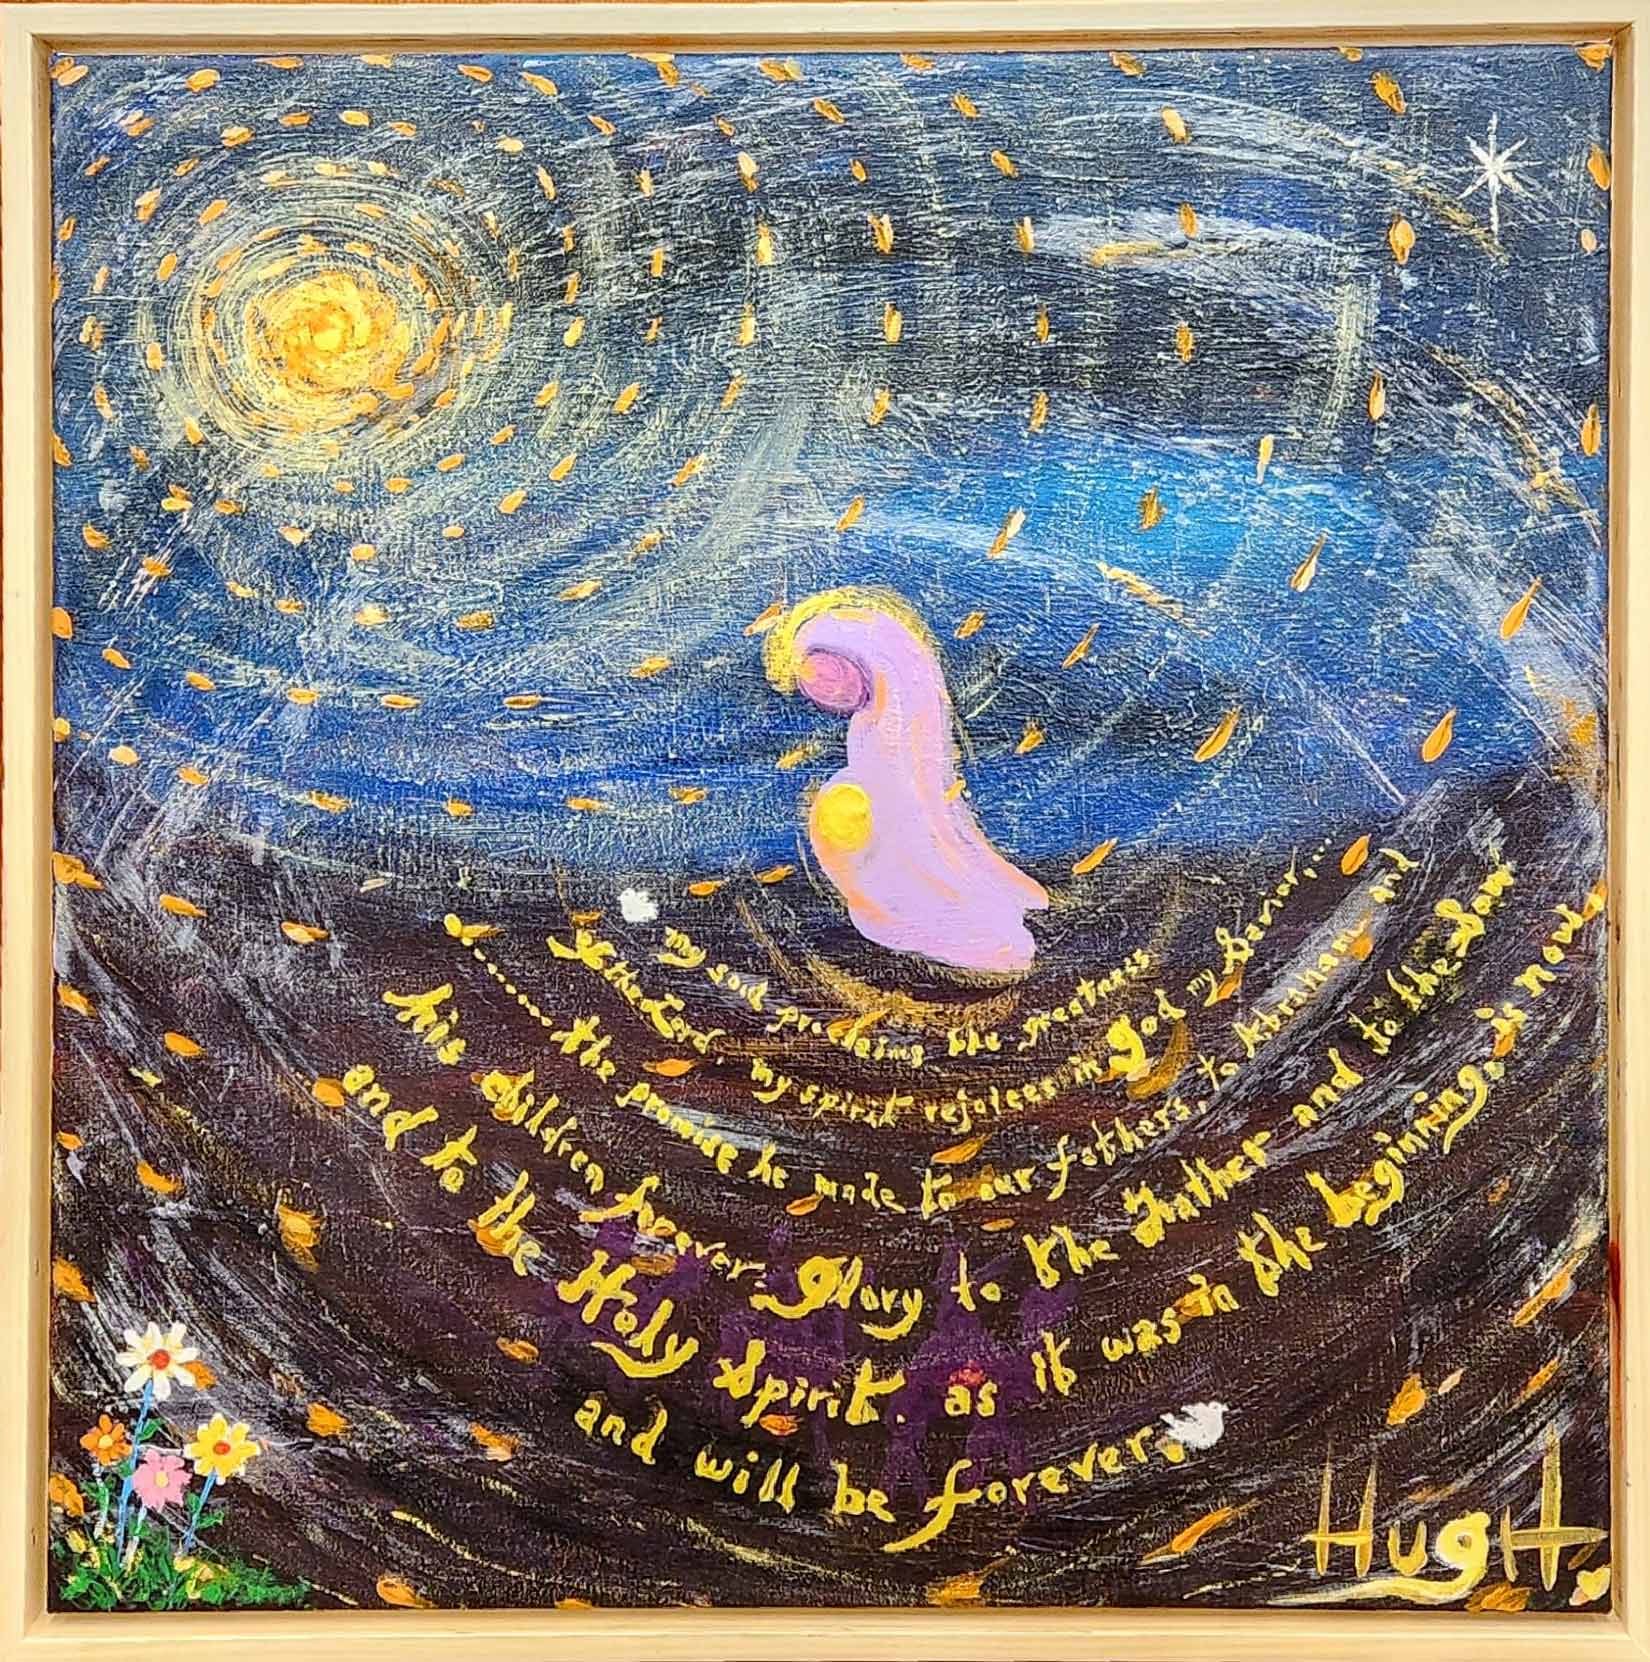 my soul proclaims the greatness
of the Lord. my spirit rejoices in god my Savior,...
.......the promise he made to our fathers, to Abraham and
his children forever. Glory to the Father and to the Son
and to the Holy Spirit. as it was in the beginning, is now
and will be forever.
HugH.